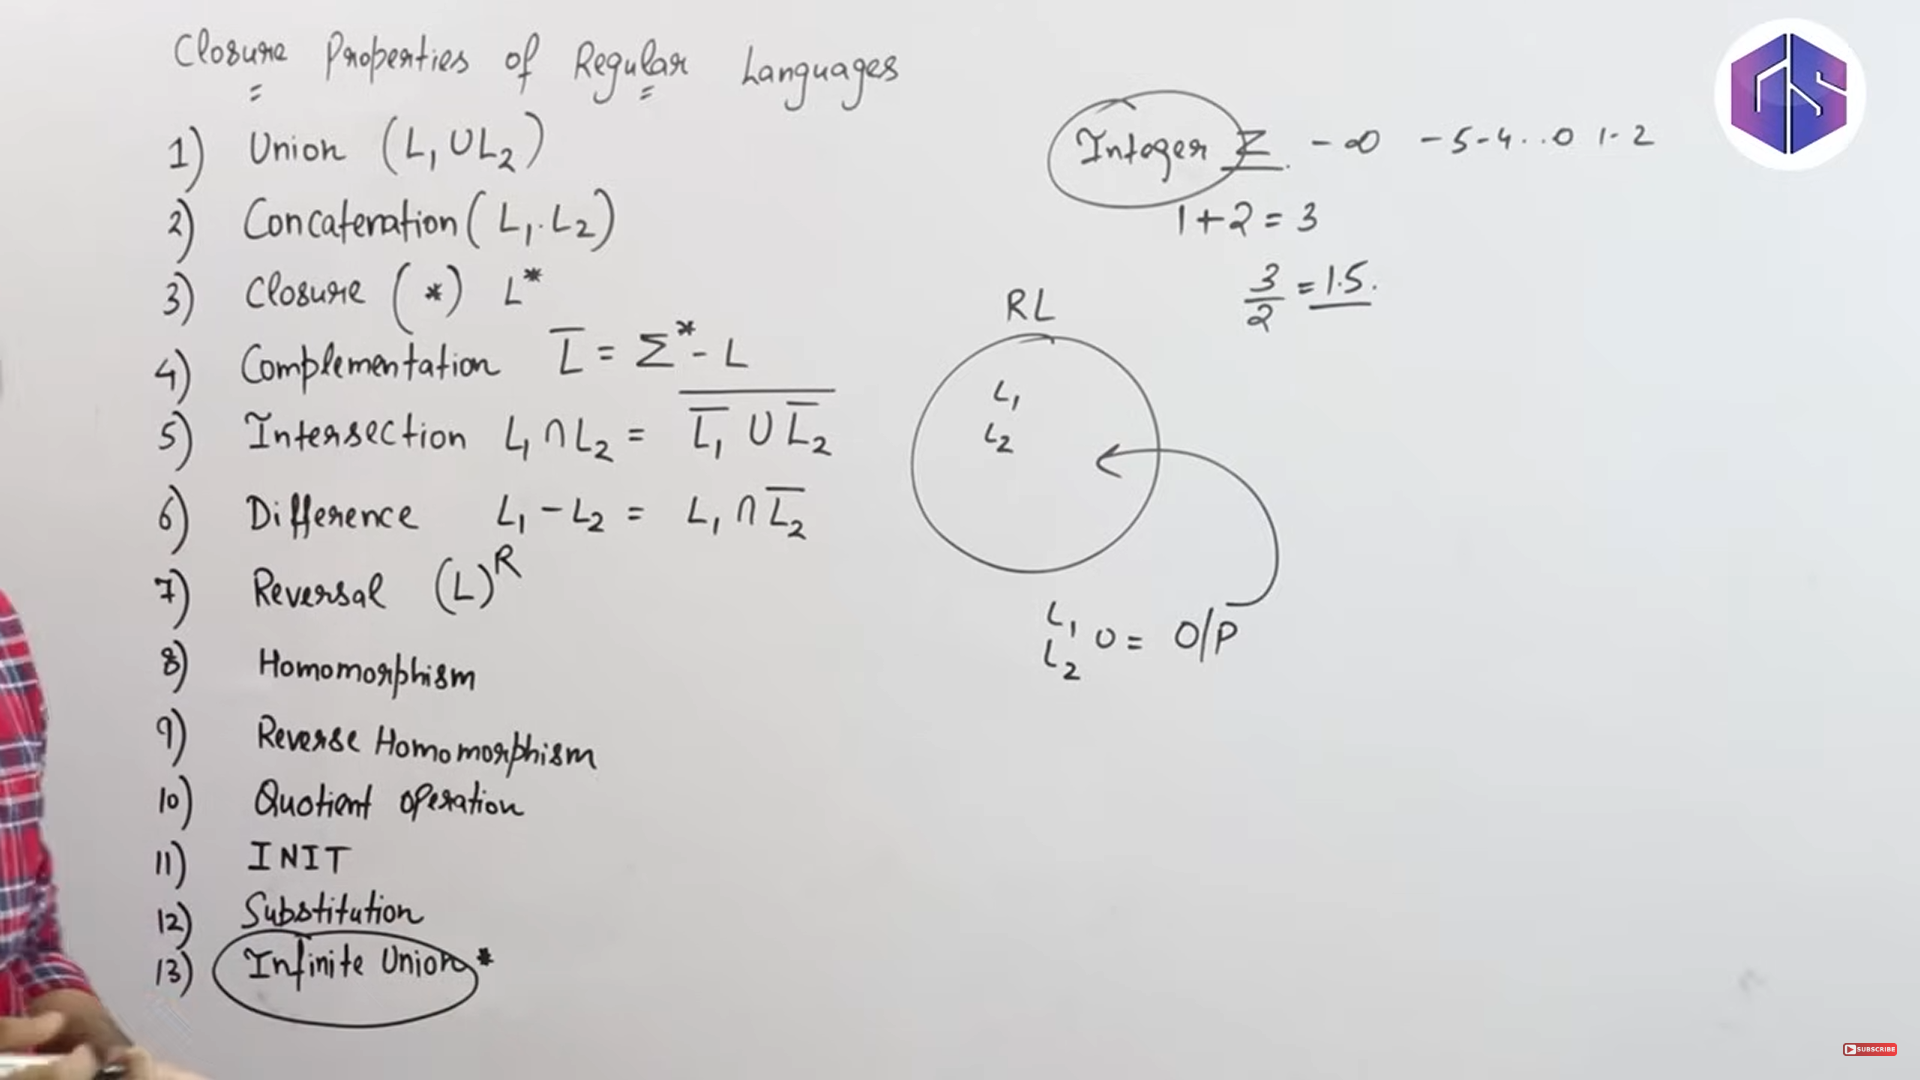 Closure Properties of Regular Languages
1) Union (L₁ ∪ L₂)
2) Concatenation (L₁.L₂)
3) Closure (*) L*
4) Complementation L̅ = Σ* - L
5) Intersection L₁ ∩ L₂ = \overline{\overline{L₁} ∪ \overline{L₂}}
6) Difference L₁ - L₂ = L₁ ∩ \overline{L₂}
7) Reversal (L)ᴿ
8) Homomorphism
9) Reverse Homomorphism
10) Quotient operation
11) INIT
12) Substitution
13) Infinite Union *
Integer Z. -∞ -5-4..0 1-2
1+2=3
3/2 = 1.5.
RL
L₁
L₂
L₁
L₂ 0 = O/P
GS
SUBSCRIBE